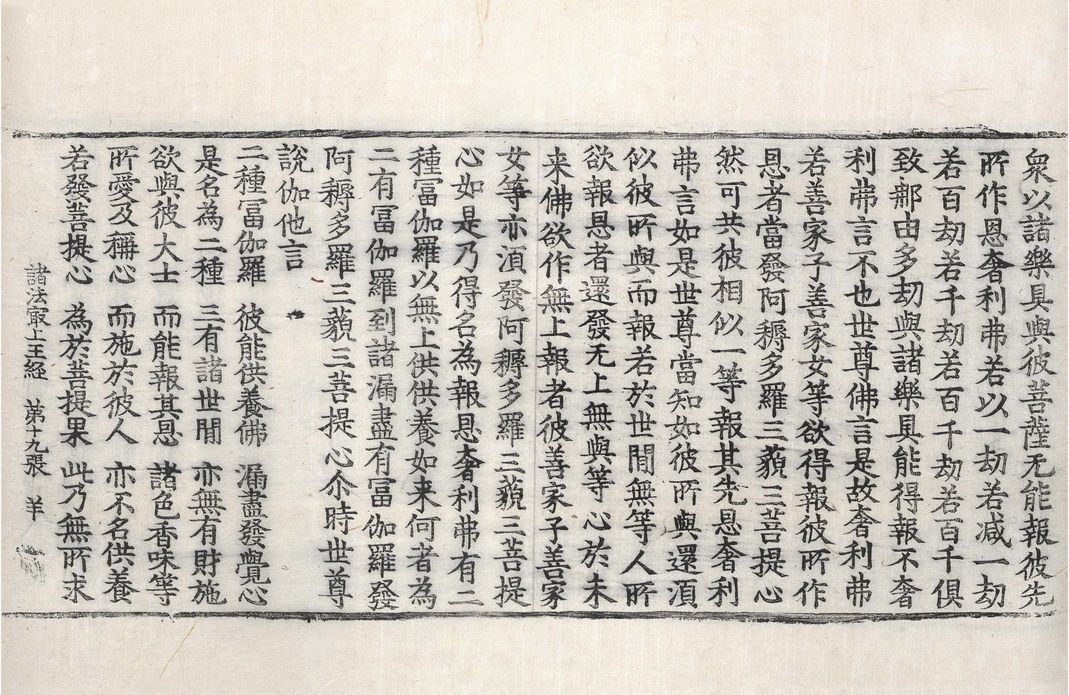 衆以諸樂具與彼菩薩无能報彼先
所作恩奢利弗若以一劫若减一劫
若百劫若千劫若百千劫若百千俱
致鄙由多劫與諸樂具能得報不奢
利弗言不也世尊佛言是故奢利弗
若善家子善家女等欲得報彼所作
恩者當發阿耨多羅三藐三菩提心
然可共彼相似一等報其先恩奢利
弗言如是世尊當知如彼所與還須
似彼所與而報若於世閒無等人所
欲報恩者還發无上無與等心於未
来佛欲作無上報者彼善家子善家
女等亦湏發阿耨多羅三藐三菩提
心如是乃得名為報恩奢利弗有二
種冨伽羅以無上供供養如来何者為
二有冨伽羅到諸漏盡有冨伽羅發
阿耨多羅三藐三菩提心尒時世尊
說伽他言
二種冨伽羅 彼能供養佛 漏盡發覺心
是名為二種 三有諸世閒 亦無有財施
欲與彼大士 而能報其恩 諸色香味等
所愛及稱心 而施於彼人 亦不名供養
若發菩提心 為於菩提果 此乃無所求
諸法㝡上王經 苐十九張 羊